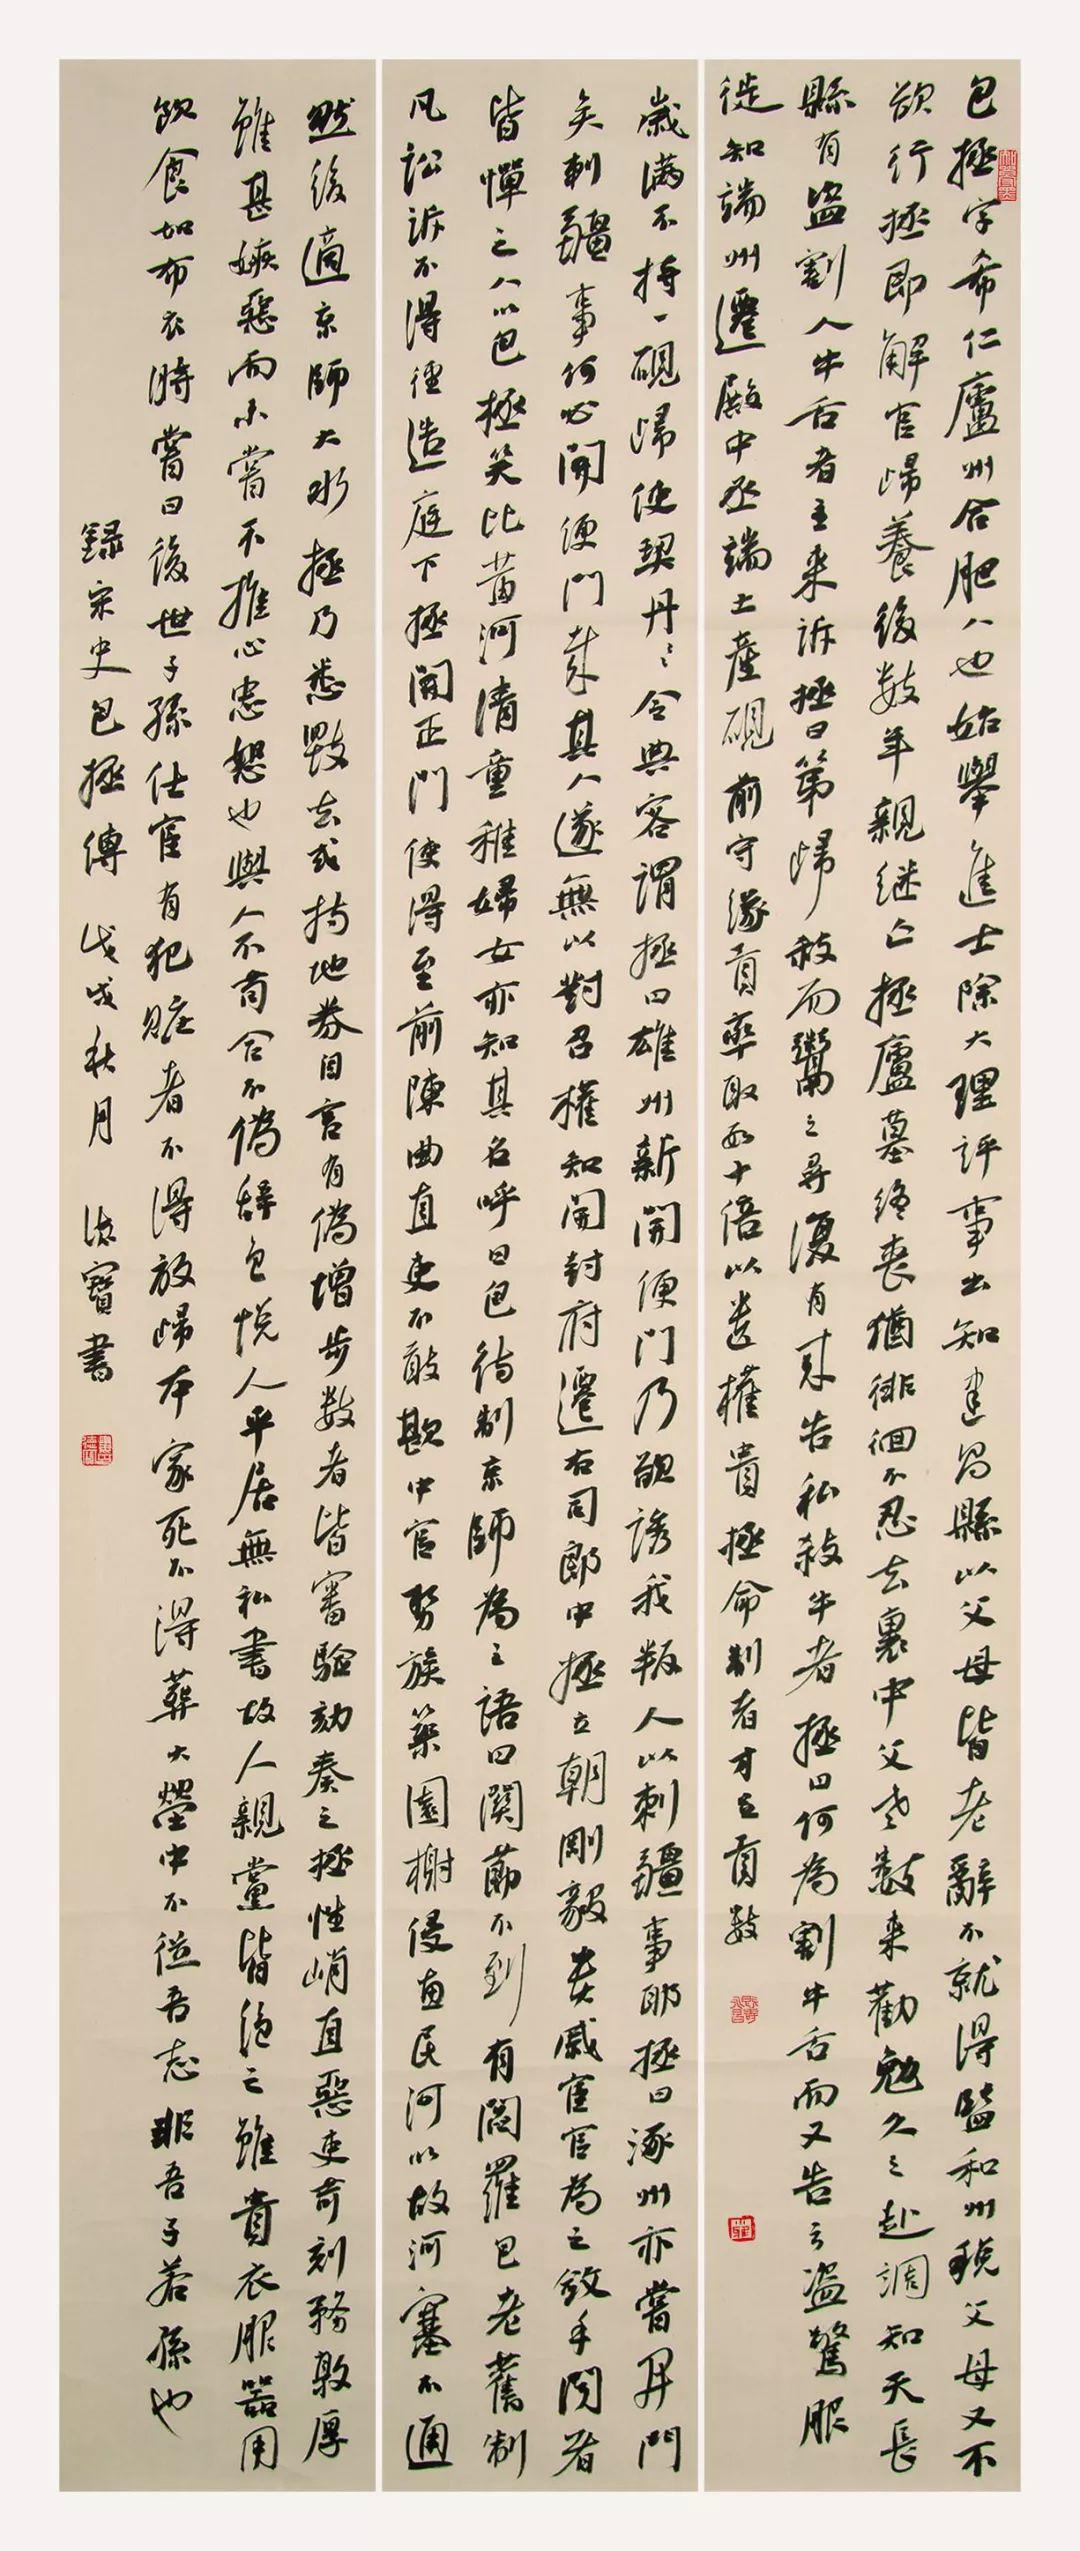 包拯字希仁廬州合肥人也始舉進士除大理評事出知建昌縣以父母皆老辭不就得監和州稅父母又不
欲行拯即解官歸養後數年親繼亡拯廬墓終喪猶徘徊不忍去里中父老數來勸勉久之赴調知天長
縣有盜割人牛舌者主來訴拯曰第歸殺而鬻之尋復有來告私殺牛者拯曰何為割牛舌而又告之盜驚服
徙知端州遷殿中丞端土產硯前守緣貢率取數十倍以遺權貴拯命制者才足貢數
歲滿不持一硯歸使契丹之令典客謂拯曰雄州新開便門乃欲誘我叛人以刺疆事耶拯曰涿州亦嘗開門
矣刺疆事何必開便門哉其人遂無以對召權知開封府遷右司郎中拯立朝剛毅貴戚宦官為之斂手聞者
皆憚之人以包拯笑比黃河清童稚婦女亦知其名呼曰包待制京師為之語曰關節不到有閻羅包老舊制
凡訟訴不得徑造庭下拯開正門使得至前陳曲直吏不敢欺中官勢族築園榭侵惠民河以故河塞不通
然後適京師大水拯乃悉毀去或持地券自言有偽增步數者皆審驗劾奏之拯性峭直惡吏苛刻務敦厚
雖甚嫉惡而未嘗不推心忠恕也與人不苟合不偽辭色悅人平居無私書故人親黨皆絕之雖貴衣服器用
飲食如布衣時嘗曰後世子孫仕宦有犯贓者不得放歸本家死不得葬大塋中不從吾志非吾子若孫也
錄宋史包拯傳 戊戌秋月 德寶書